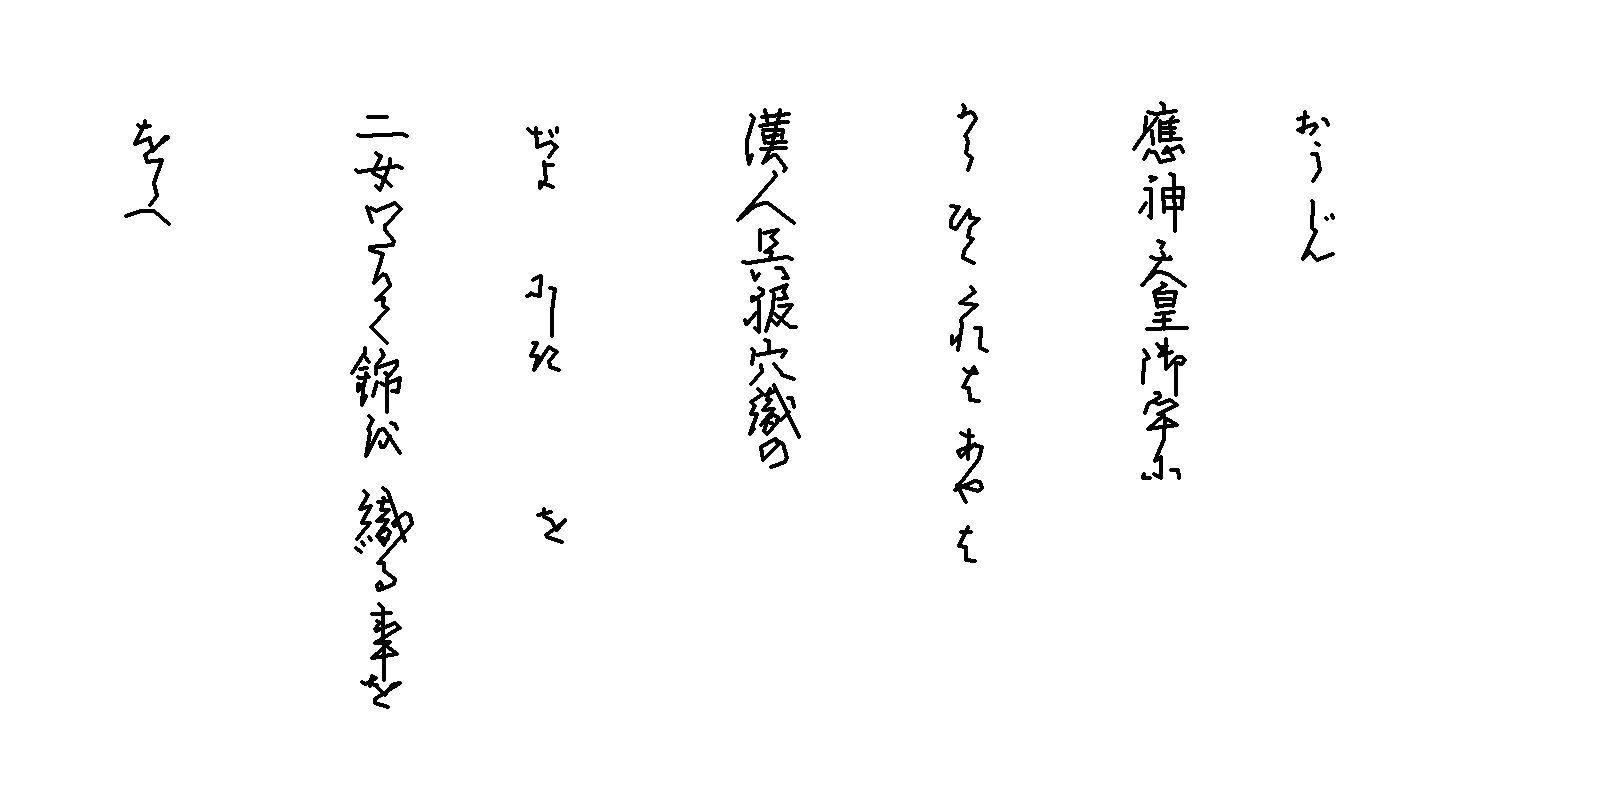 おうじん
應神天皇御宇に
からひと くれは あやは
漢人呉服穴織の
ぢよ にしき を
二女 錦を織る事を
をしへ